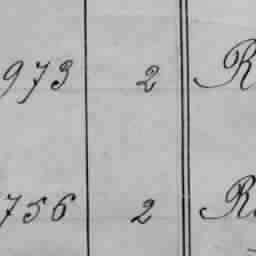 973 2 R
756 2 R